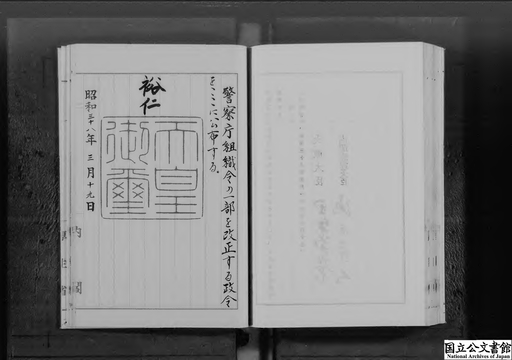 警察庁組織令の一部を改正する政令
をここに公布する。
裕仁
天皇御璽
昭和三十八年三月十九日
内閣
国立公文書館
National Archives of Japan